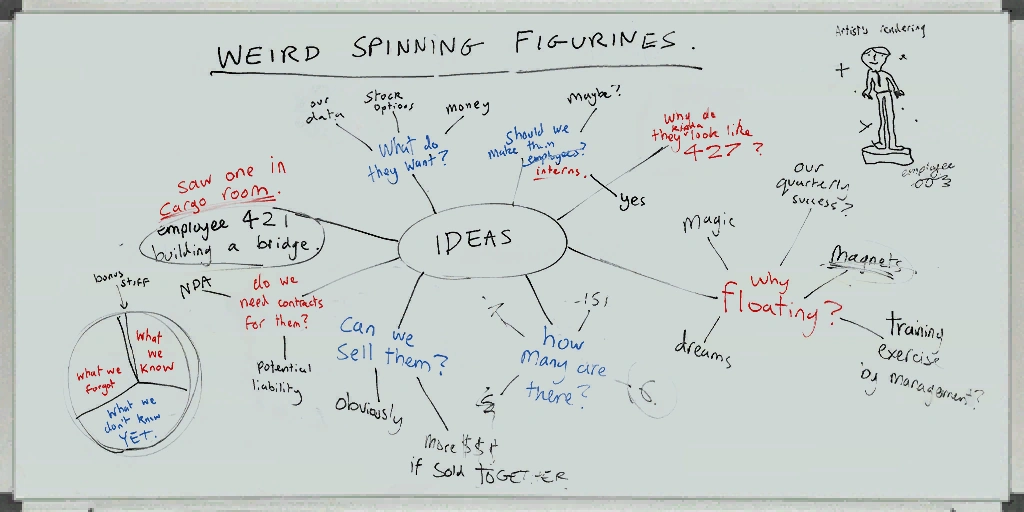 WEIRD SPINNING FIGURINES.
Artist's rendering
employee
003
our
data
Stock
options
money
What do
they want?
Should we
make them
employees?
interns.
maybe?
yes
Why do
kinda
they look like
427?
our
quarterly
success?
Magic
Magnets
why
floating?
dreams
training
exercise
by management?
saw one in
Cargo room.
employee 421
building a bridge.
IDEAS
NDA
do we
need contracts
for them?
potential
liability
Can we
sell them?
Obviously
More $$$
if sold TOGETHER
how
many are
there?
151
6
bonus
stuff
What
we
Know
what we
forgot
What we
don't know
YET.